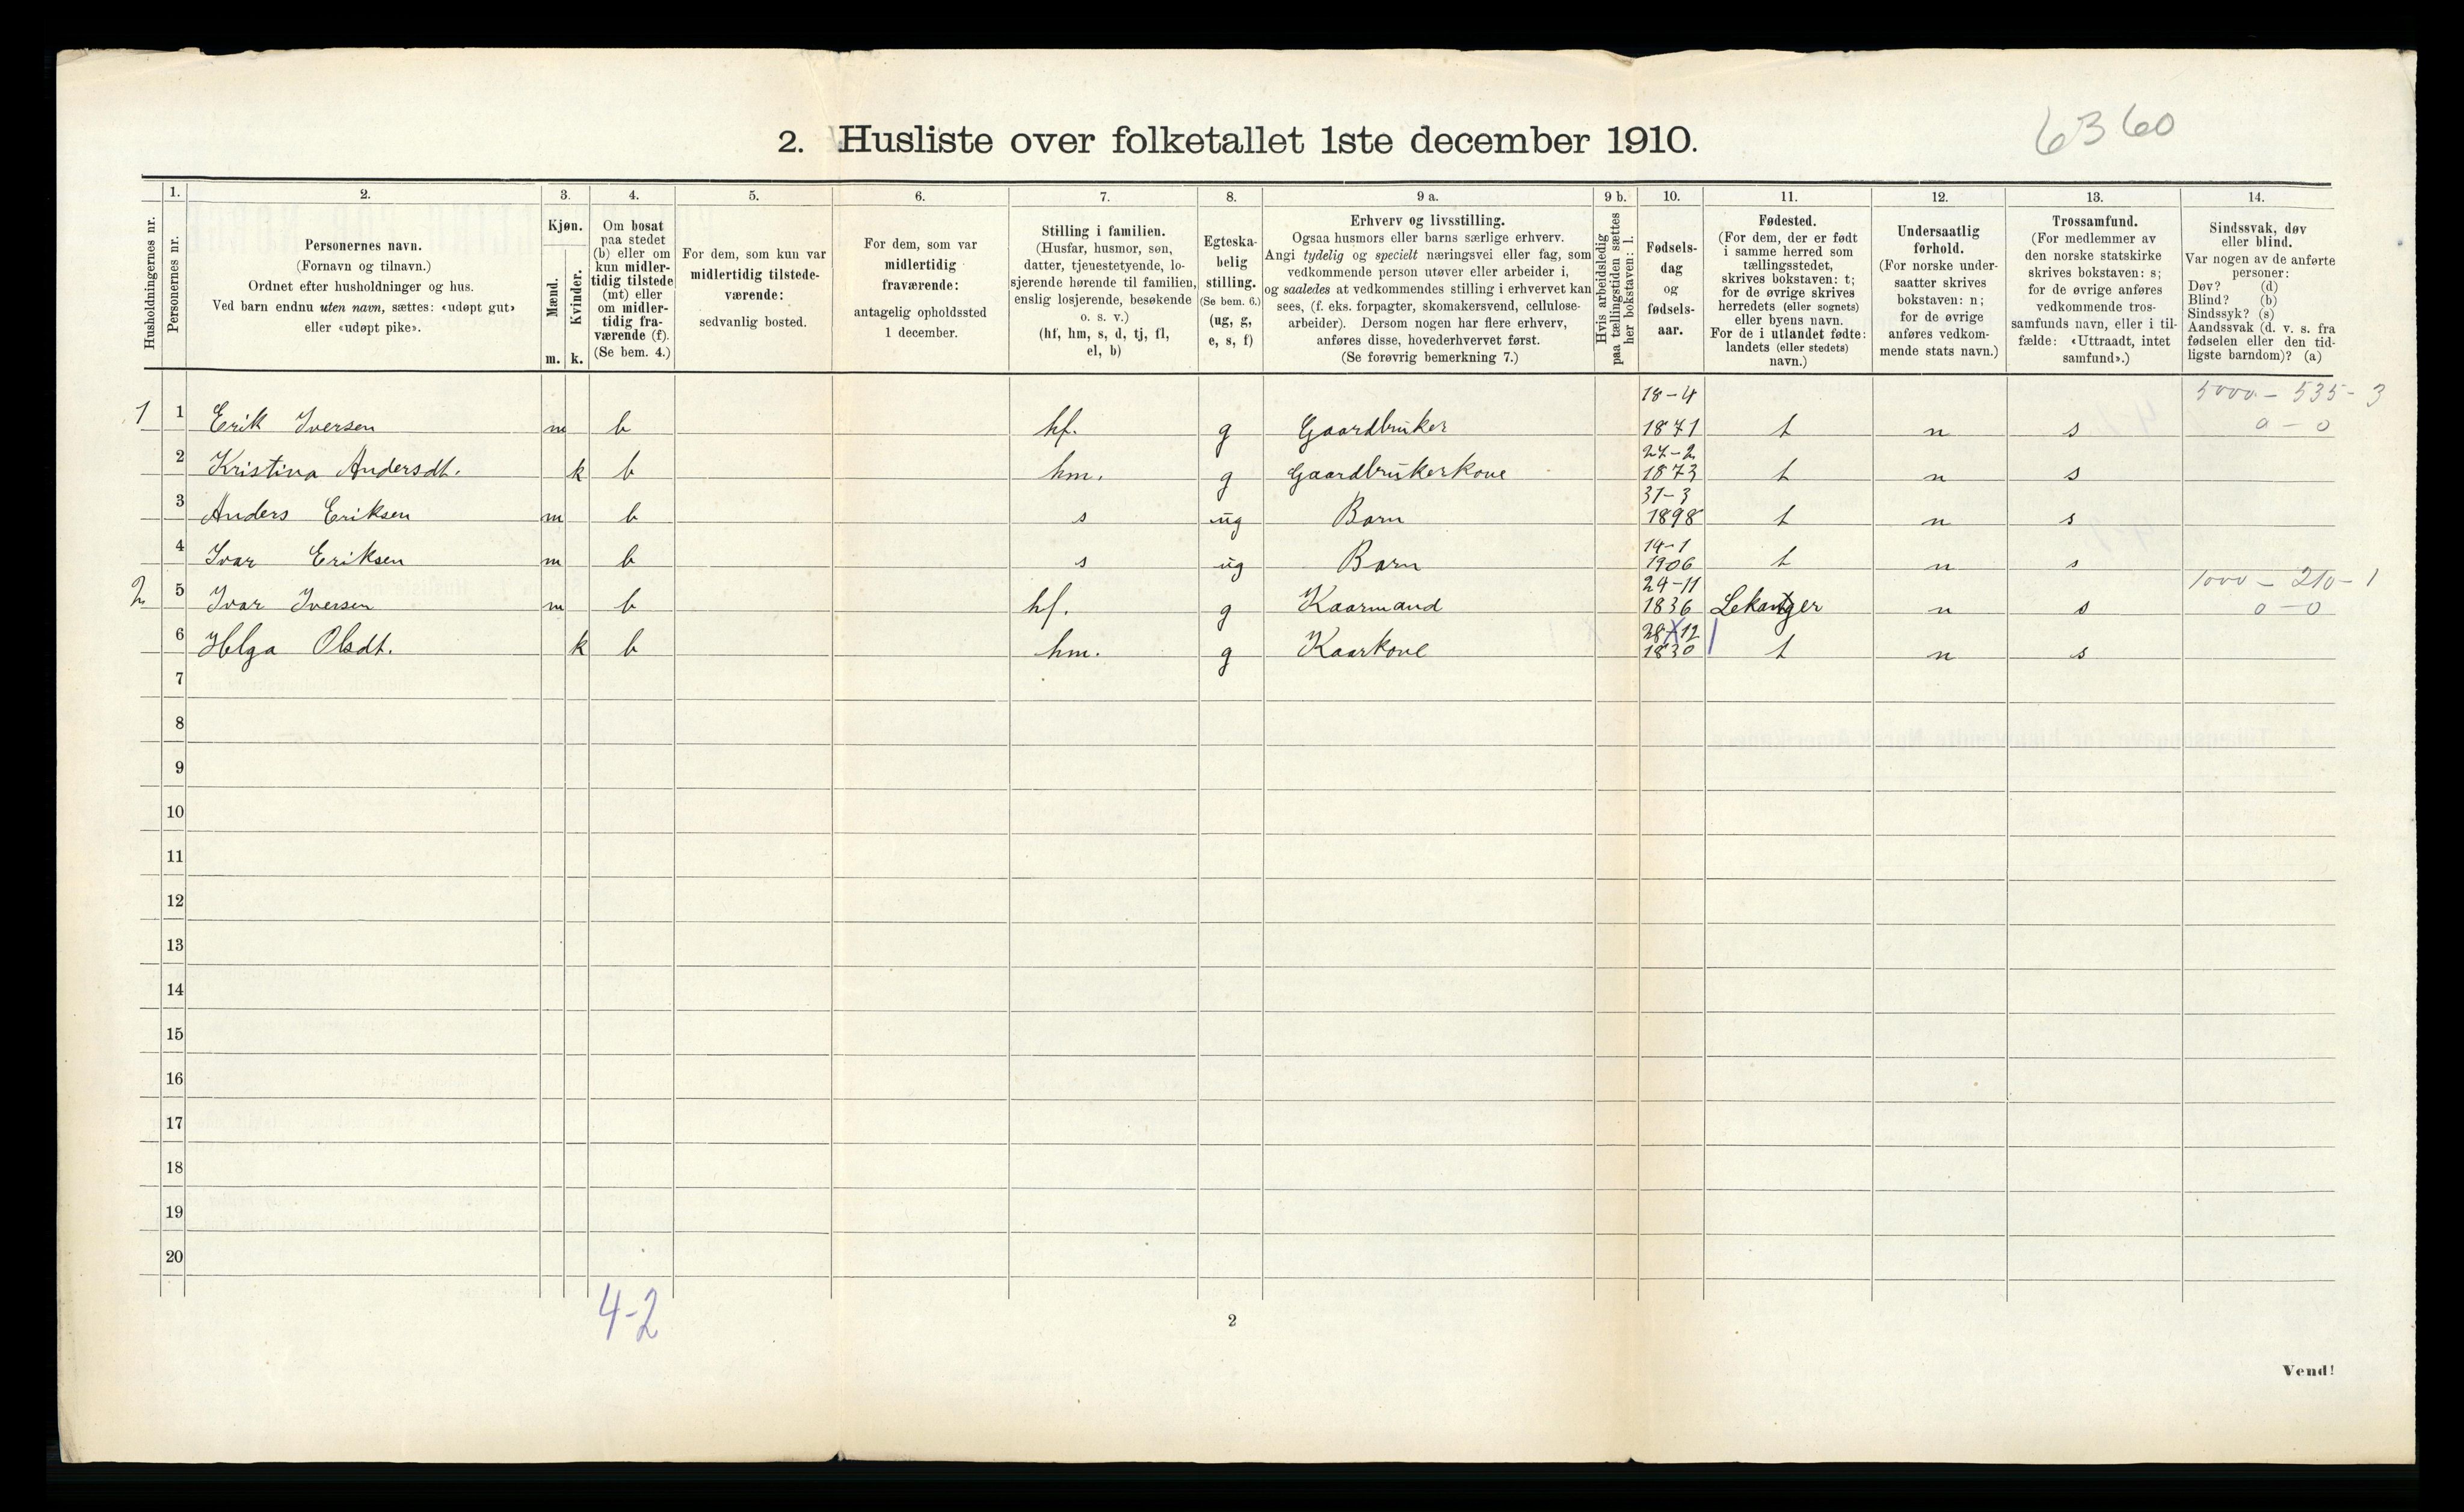 6360
2. Husliste over folketallet 1ste december 1910.
Husholdningernes nr.
1. Personernes nr.
2. Personernes navn. (Fornavn og tilnavn.) Ordnet efter husholdninger og hus. Ved barn endnu uten navn, sættes: «udøpt gut» eller «udøpt pike».
3. Kjøn. Mænd. m. Kvinder. k.
4. Om bosat paa stedet (b) eller om kun midlertidig tilstede (mt) eller om midlertidig fraværende (f). (Se bem. 4.)
5. For dem, som kun var midlertidig tilstedeværende: sedvanlig bosted.
6. For dem, som var midlertidig fraværende: antagelig opholdssted 1 december.
7. Stilling i familien. (Husfar, husmor, søn, datter, tjenestetyende, losjerende hørende til familien, enslig losjerende, besøkende o. s. v.) (hf, hm, s, d, tj, fl, el, b)
8. Egteskabelig stilling. (Se bem. 6.) (ug, g, e, s, f)
9 a. Erhverv og livsstilling. Ogsaa husmors eller barns særlige erhverv. Angi tydelig og specielt næringsvei eller fag, som vedkommende person utøver eller arbeider i, og saaledes at vedkommendes stilling i erhvervet kan sees, (f. eks. forpagter, skomakersvend, cellulosearbeider). Dersom nogen har flere erhverv, anføres disse, hovederhvervet først. (Se forøvrig bemerkning 7.)
9 b. Hvis arbeidsledig paa tællingstiden sættes her bokstaven: l.
10. Fødselsdag og fødselsaar.
11. Fødested. (For dem, der er født i samme herred som tællingsstedet, skrives bokstaven: t; for de øvrige skrives herredets (eller sognets) eller byens navn. For de i utlandet fødte: landets (eller stedets) navn.)
12. Undersaatlig forhold. (For norske undersaatter skrives bokstaven: n; for de øvrige anføres vedkommende stats navn.)
13. Trossamfund. (For medlemmer av den norske statskirke skrives bokstaven: s; for de øvrige anføres vedkommende trossamfunds navn, eller i tilfælde: «Uttraadt, intet samfund».)
14. Sindssvak, døv eller blind. Var nogen av de anførte personer: Døv? (d) Blind? (b) Sindssyk? (s) Aandssvak (d. v. s. fra fødselen eller den tidligste barndom)? (a)
1 1 Erik Iversen m b hf. g Gaardbruker 18-4 1871 t n s 5000 - 535 - 3 0 - 0
2 Kristina Andersdt. k b hm. g Gaardbrukerkone 27-2 1873 t n s
3 Anders Eriksen m b s ug Barn 31-3 1898 t n s
4 Ivar Eriksen m b s ug Barn 14-1 1906 t n s
2 5 Ivar Iversen m b hf. g Kaarmand 24-11 1836 Lekanger n s 1000 - 210 - 1 0 - 0
6 Helga Olsdt. k b hm. g Kaarkone 28-12 1830 t n s
7
8
9
10
11
12
13
14
15
16
17
18
19
20
4-2
2
Vend!